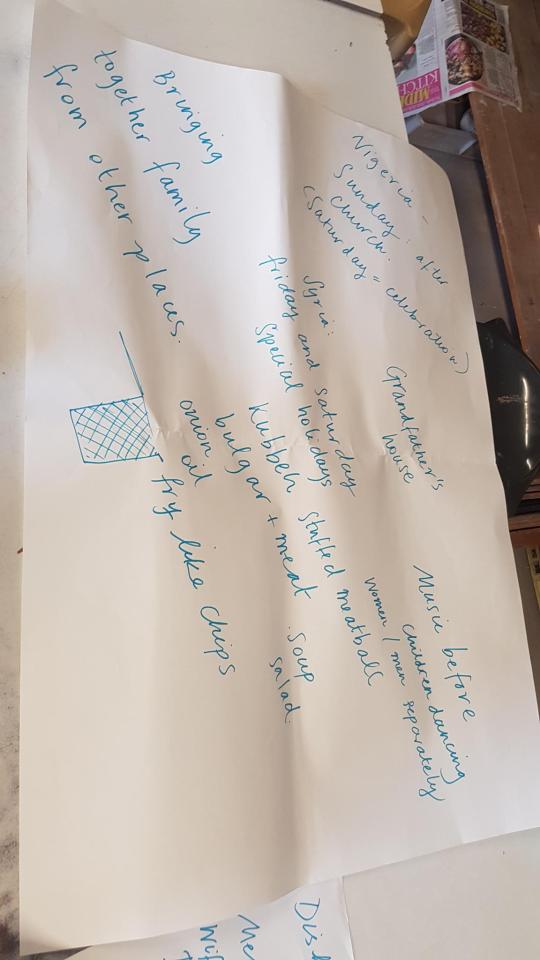 Bringing
together family
from other places.
Nigeria -
Sunday: after
church.
(Saturday = celebration)
Syria:
friday and saturday
Special holidays
Kubbeh stuffed meatballs
bulgar + meat
onion oil
fry like chips
Soup
salad.
Grandfather's
house
Music before
children dancing
women / men separately
KITCH
Dis
Me